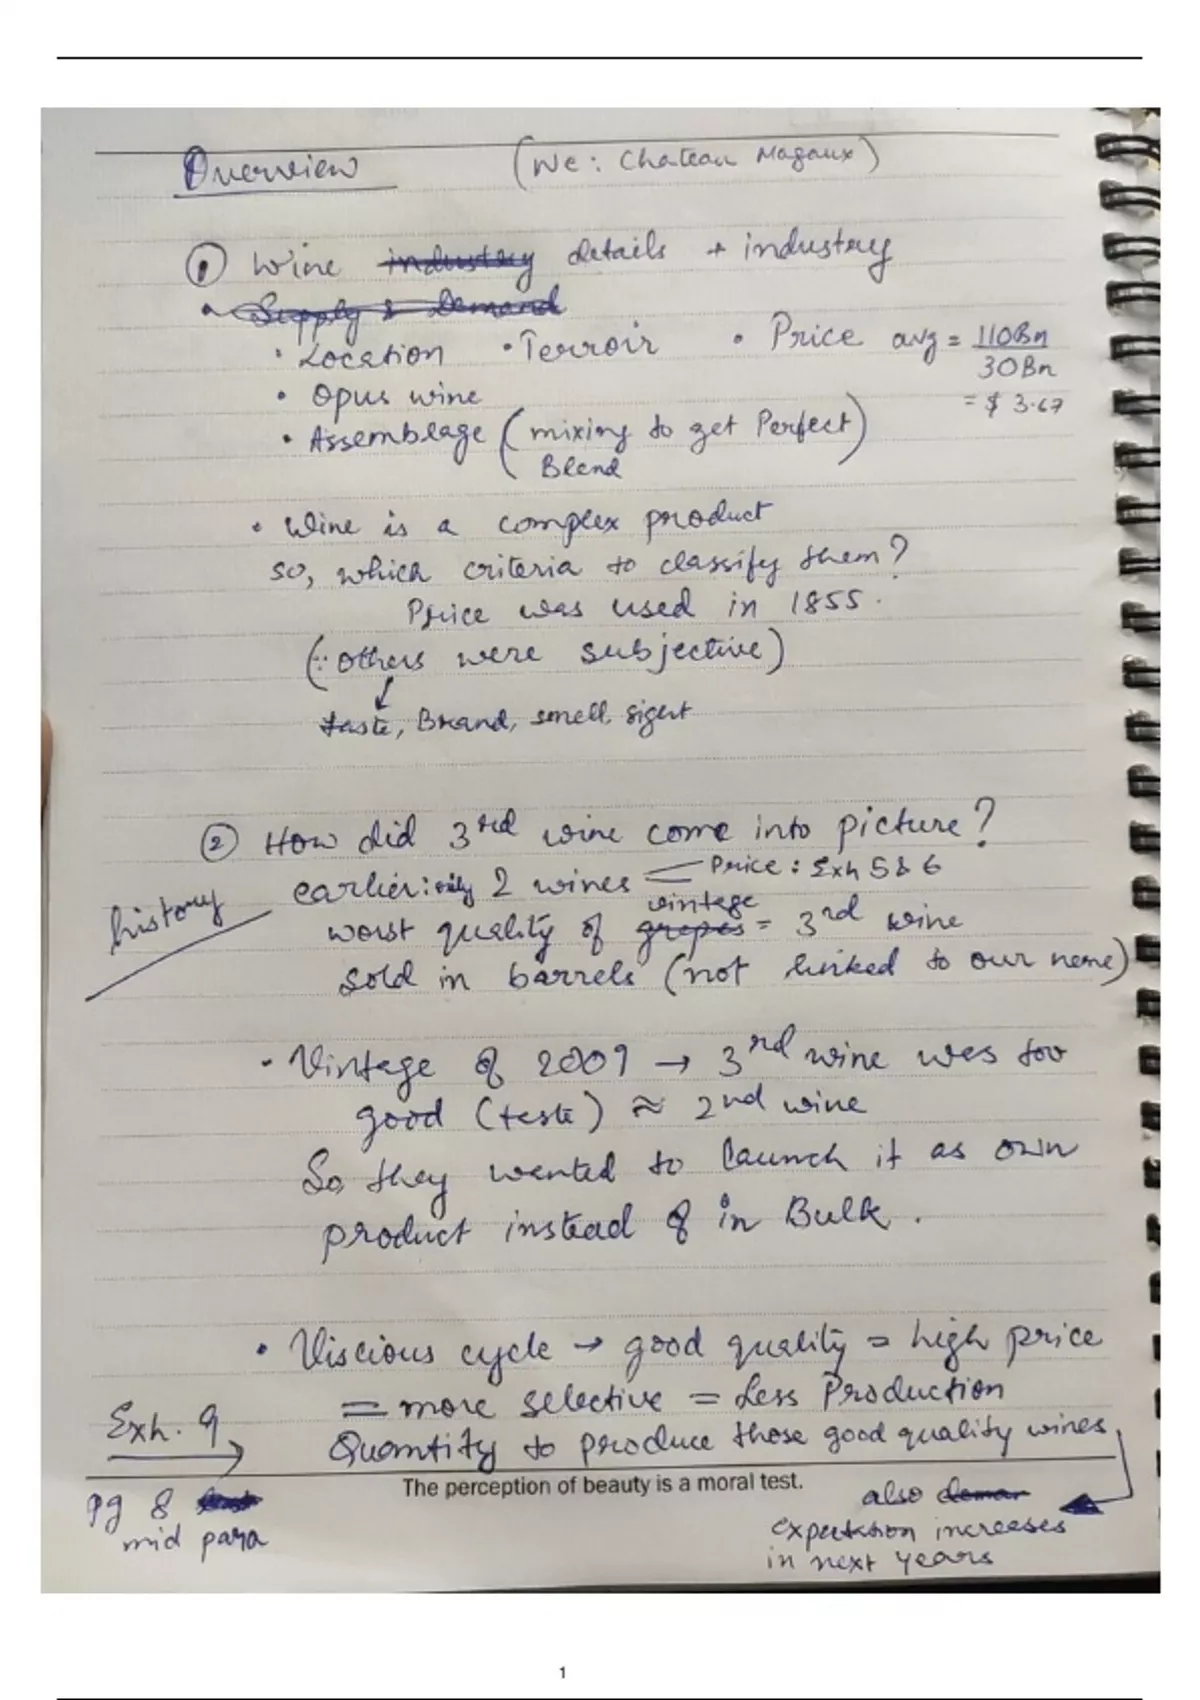 Overview (We: Chateau Magaux)
① Wine industry details + industry
• Supply & Demand
• Location • Terroir • Price avg = 110Bn
30Bn
• Opus wine = $ 3.67
• Assemblage (mixing to get Perfect)
Blend
• Wine is a complex product
so, which criteria to classify them?
Price was used in 1855.
(∵ others were subjective)
↓
taste, Brand, smell, sight
② How did 3rd wine come into picture?
earlier: only 2 wines Price: Exh 5 & 6
history
vintage
worst quality of grapes = 3rd wine
sold in barrels (not linked to our name)
• Vintage of 2009 → 3rd wine was too
good (taste) ≈ 2nd wine
So, they wanted to launch it as own
product instead of in Bulk.
• Viscious cycle → good quality = high price
= more selective = Less Production
Exh. 9
Quantity to produce those good quality wines
The perception of beauty is a moral test.
pg 8
mid para
also demar
expectation increases
in next years
1